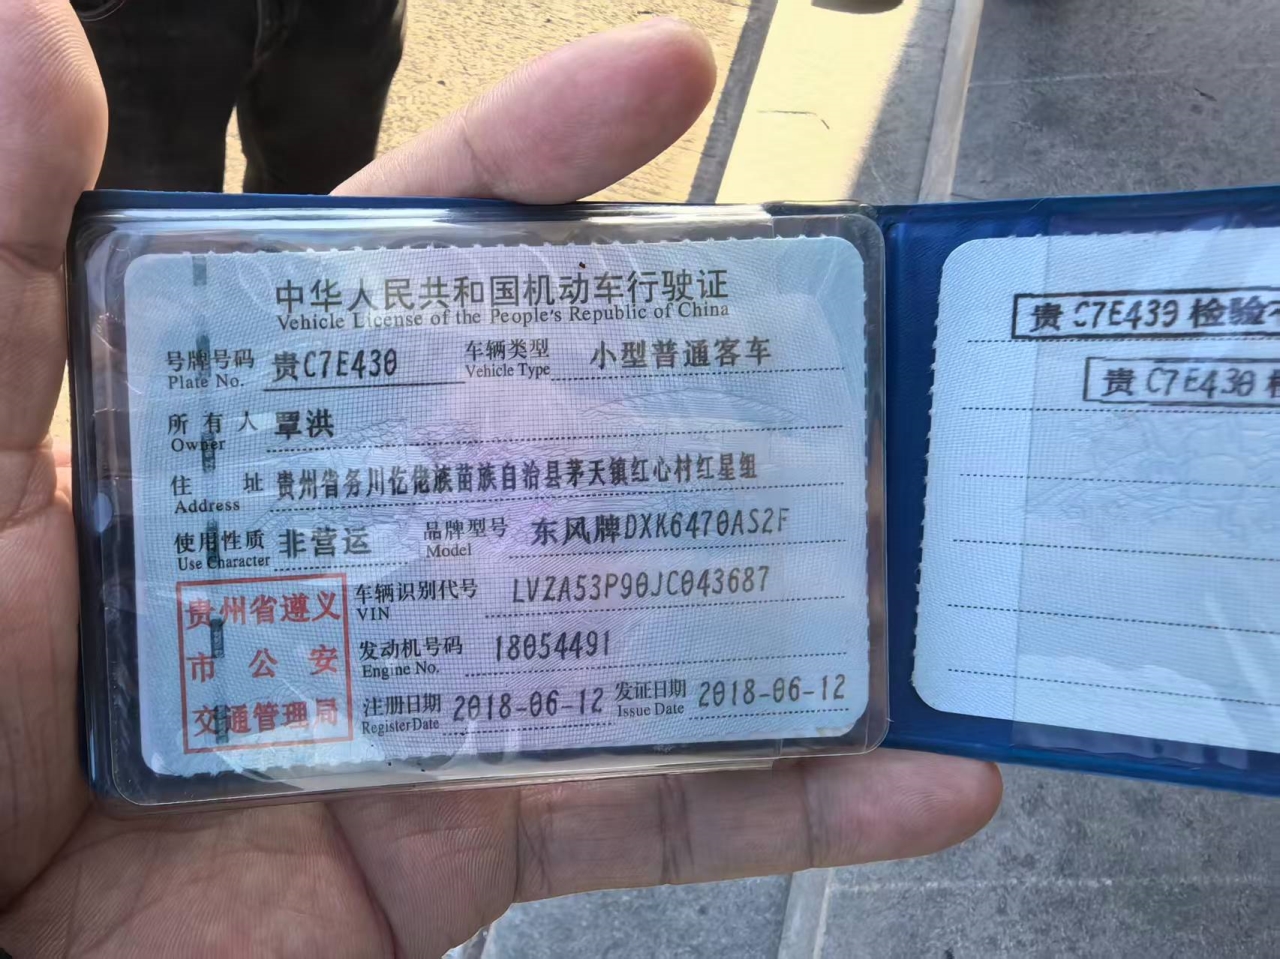 中华人民共和国机动车行驶证
Vehicle License of the People's Republic of China
号牌号码 贵C7E430 车辆类型 小型普通客车
Plate No. Vehicle Type
所有人 覃洪
Owner
住址 贵州省务川仡佬族苗族自治县茅天镇红心村红星组
Address
使用性质 非营运 品牌型号 东风牌DXK6470AS2F
Use Character Model
车辆识别代号 LVZA53P90JC043687
VIN
发动机号码 18054491
Engine No.
注册日期 2018-06-12 发证日期 2018-06-12
Register Date Issue Date
贵州省遵义
市公安
交通管理局
贵C7E430 检验
贵C7E430